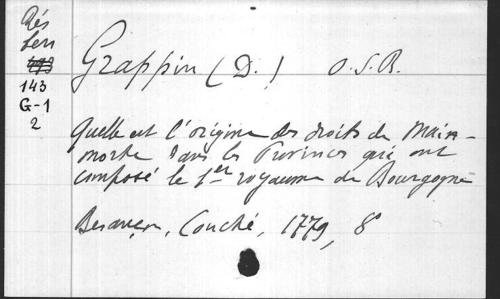 Rés
Grappin (D.) O.S.B.
143
G-1
2
Quelle est l'origine des droits de Main-
morte dans les Provinces qui ont
composé le 1er royaume de Bourgogne
Besançon, Couché, 1779, 8°